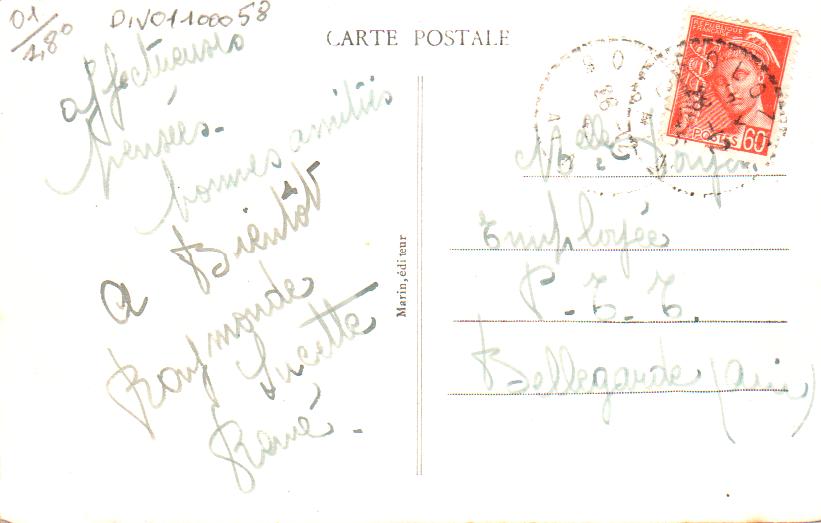 01/
1,80
DIV01100058
CARTE POSTALE
affectueuses
pensées.
bonnes amitiés
a Bientôt
Raymonde
Lucette
René.
Marin, éditeur
REPUBLIQUE
FRANÇAISE
POSTES 60
Melle
Employée
P.T.T.
Bellegarde (Ain)